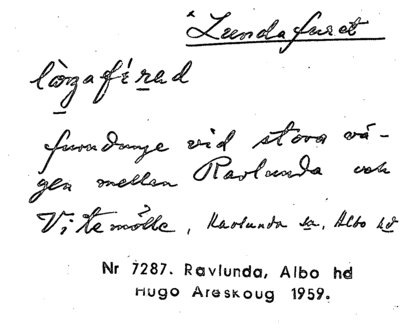 *Lundafuret
furudunge vid stora vä-
gen mellan Ravlunda och
Vitemölle, Ravlunda sn, Albo hd
Nr 7287. Ravlunda, Albo hd
Hugo Areskoug 1959.